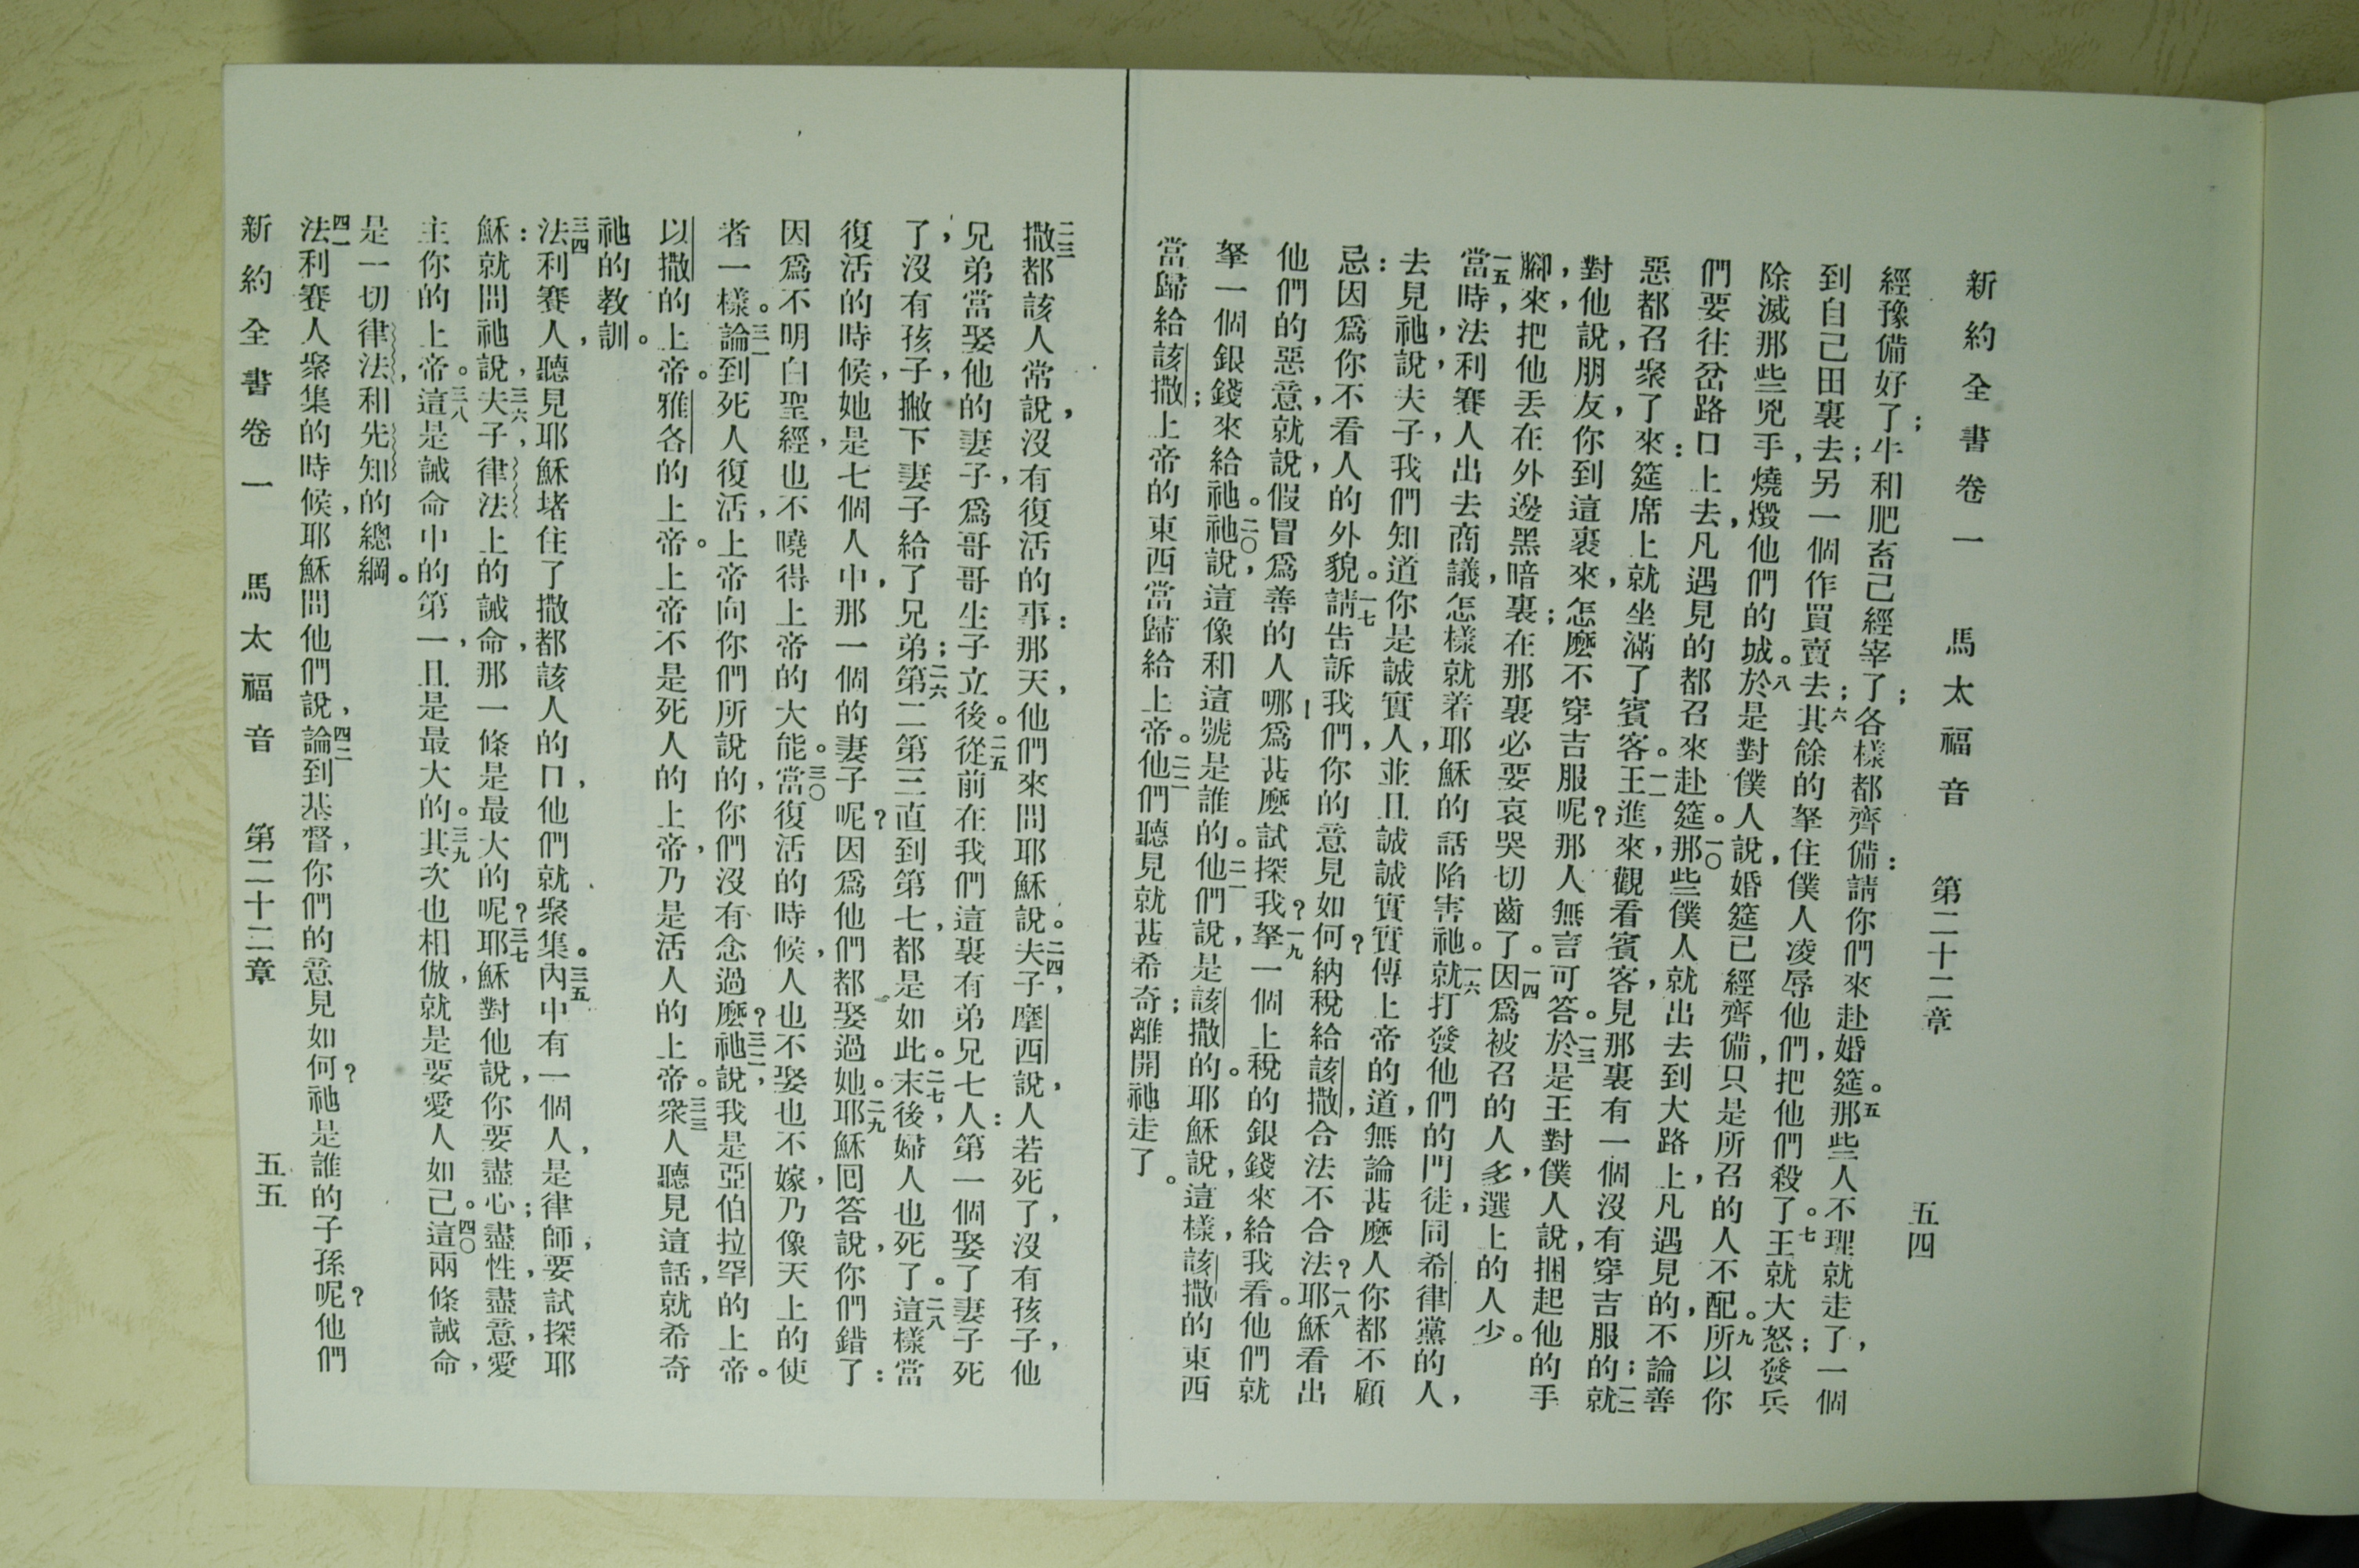 新約全書卷一　馬太福音　第二十二章　五四
經豫備好了；牛和肥畜已經宰了；各樣都齊備：請你們來赴婚筵。五那些人不理就走了，一個
到自己田裏去；另一個作買賣去；六其餘的拏住僕人凌辱他們，把他們殺了。七王就大怒；發兵
除滅那些兇手，燒燬他們的城。八於是對僕人說，婚筵已經齊備，只是所召的人不配。九所以你
們要往岔路口上去，凡遇見的都召來赴筵。一〇那些僕人就出去到大路上，凡遇見的，不論善
惡都召聚了來：筵席上就坐滿了賓客。一一王進來，觀看賓客，見那裏有一個沒有穿吉服的；一二就
對他說，朋友，你到這裏來，怎麼不穿吉服呢？那人無言可答。一三於是王對僕人說，捆起他的手
腳，來，把他丟在外邊黑暗裏；在那裏必要哀哭切齒了。一四因爲被召的人多，選上的人少。
一五當時，法利賽人出去商議，怎樣就着耶穌的話陷害祂。一六就打發他們的門徒，同希律黨的人，
去見祂，說，夫子，我們知道你是誠實人，並且誠誠實實傳上帝的道，無論甚麼人你都不顧
忌：因爲你不看人的外貌。一七請告訴我們，你的意見如何？納稅給該撒，合法不合法？一八耶穌看出
他們的惡意，就說，假冒爲善的人哪！爲甚麼試探我？一九拏一個上稅的銀錢來給我看。他們就
拏一個銀錢來給祂。二〇祂說，這像和這號是誰的。二一他們說，是該撒的。耶穌說，這樣，該撒的東西
當歸給該撒；上帝的東西當歸給上帝。二二他們聽見就甚希奇；離開祂走了。
二三撒都該人常說，沒有復活的事：那天，他們來問耶穌說。二四夫子，摩西說，人若死了，沒有孩子，他
兄弟當娶他的妻子，爲哥哥生子立後。二五從前在我們這裏有弟兄七人：第一個娶了妻子死
了，沒有孩子，撇下妻子給了兄弟；二六第二第三直到第七，都是如此。二七末後，婦人也死了。二八這樣當
復活的時候，她是七個人中，那一個的妻子呢？因爲他們都娶過她。二九耶穌回答說，你們錯了：
因爲不明白聖經，也不曉得上帝的大能。三〇當復活的時候，人也不娶也不嫁，乃像天上的使
者一樣。三一論到死人復活，上帝向你們所說的，你們沒有念過麼？三二祂說，我是亞伯拉罕的上帝。
以撒的上帝。雅各的上帝。上帝不是死人的上帝，乃是活人的上帝。三三衆人聽見這話，就希奇
祂的教訓。
三四法利賽人，聽見耶穌堵住了撒都該人的口，他們就聚集。三五內中有一個人，是律師，要試探耶
穌：就問祂說，三六夫子，律法上的誡命，那一條是最大的呢？三七耶穌對他說，你要盡心；盡性，盡意，愛
主你的上帝。三八這是誡命中的第一，且是最大的。三九其次也相倣，就是要愛人如己。四〇這兩條誡命，
是一切律法，和先知的總綱。
四一法利賽人聚集的時候，耶穌問他們說，四二論到基督，你們的意見如何？祂是誰的子孫呢？他們
新約全書卷一　馬太福音　第二十二章　五五